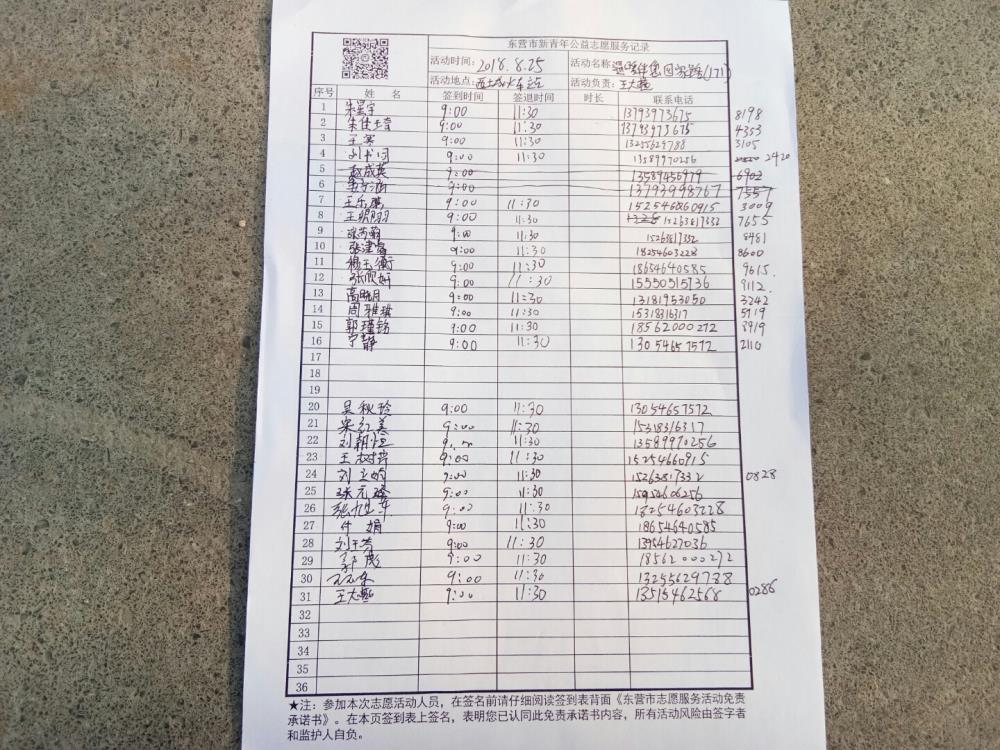 东营市新青年公益志愿服务记录
活动时间：2018.8.25 活动名称：
活动地点： 活动负责：王大
序号 姓 名 签到时间 签退时间 时长 联系电话
1 朱星宇 9:00 11:30 13793973675 8198
2 朱佳 9:00 11:30 13793973675 4353
3 王 9:00 11:30 13255629788 3105
4 刘书同 9:00 11:30 13589970256 2420
5 赵成英 9:00 13589456979 6902
6 9:00 13793998767 7557
7 王乐 9:00 11:30 152546660915 3009
8 王 9:00 11:30 15263817332 7655
9 张 9:00 11:30 15263817332 8481
10 张津睿 9:00 11:30 18254603228 8600
11 杨玉衡 9:00 11:30 18654640585 9615
12 张欣妍 9:00 11:30 15550515736 9112
13 高晓月 9:00 11:30 13181953050 3242
14 周雅琪 9:00 11:30 15318316317 5719
15 郭瑾铭 9:00 11:30 18562000272 3919
16 宁静 9:00 11:30 13054657572 2110
17
18
19
20 吴秋玲 9:00 11:30 13054657572
21 宋红美 9:00 11:30 15318316317
22 刘朝恒 9:00 11:30 13589970256
23 王树萍 9:00 11:30 15254660915
24 刘立娟 9:00 11:30 15263817332 0828
25 张元 9:00 11:30 15954606256
26 张 9:00 11:30 18254603228
27 牛娟 9:00 11:30 18654640585
28 刘 9:00 11:30 13954627036
29 郭彪 9:00 11:30 18562000272
30 9:00 11:30 13255629788
31 王大 9:00 11:30 13515462568 0286
32
33
34
35
36
★注：参加本次志愿活动人员，在签名前请仔细阅读签到表背面《东营市志愿服务活动免责
承诺书》。在本页签到表上签名，表明您已认同此免责承诺书内容，所有活动风险由签字者
和监护人自负。